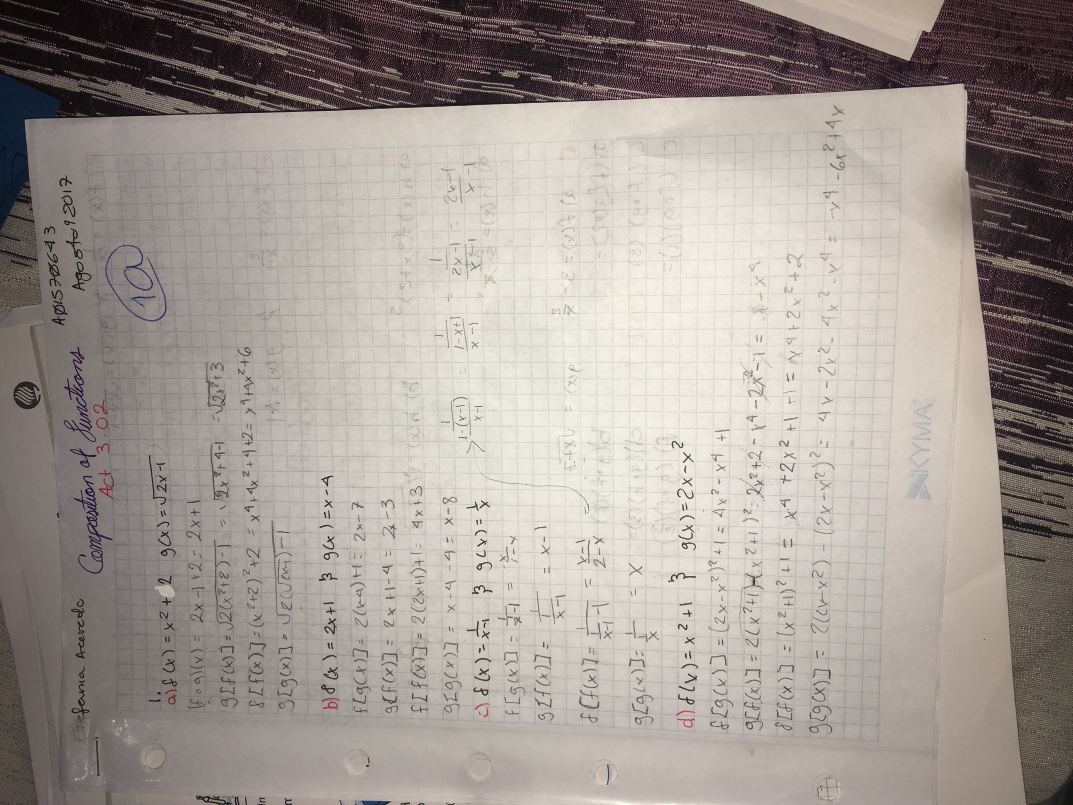 Acevedo Composition of Functions A01570643
Act 3.02 Agosto 2017
10
1.
a) f(x) = x²+2 g(x) = √2x-1
(f∘g)(x) = 2x-1+2 = 2x+1
g[f(x)] = √2(x²+2)-1 = √2x²+4-1 = √2x²+3
f[f(x)] = (x²+2)²+2 = x⁴+4x²+4+2 = x⁴+4x²+6
g[g(x)] = √2(√2x-1)-1
b) f(x) = 2x+1 } g(x) = x-4
f[g(x)] = 2(x-4)+1 = 2x-7
g[f(x)] = 2x+1-4 = 2x-3
f[f(x)] = 2(2x+1)+1 = 4x+3
g[g(x)] = x-4-4 = x-8
c) f(x) = 1/x-1 } g(x) = 1/x
f[g(x)] = 1/(1/x-1) = x/1-x
g[f(x)] = 1/(1/x-1) = x-1
f[f(x)] = 1/(1/x-1 -1) = x-1/2-x
g[g(x)] = 1/(1/x) = x
d) f(x) = x²+1 } g(x) = 2x-x²
f[g(x)] = (2x-x²)²+1 = 4x²-x⁴+1
g[f(x)] = 2(x²+1)-(x²+1)² = 2x²+2-x⁴-2x²-1 =
f[f(x)] = (x²+1)²+1 = x⁴+2x²+1+1 = x⁴+2x²+2
g[g(x)] = 2(2x-x²)-(2x-x²)² = 4x-2x²-4x²-x⁴ = -x⁴-6x²+4x
KYMA